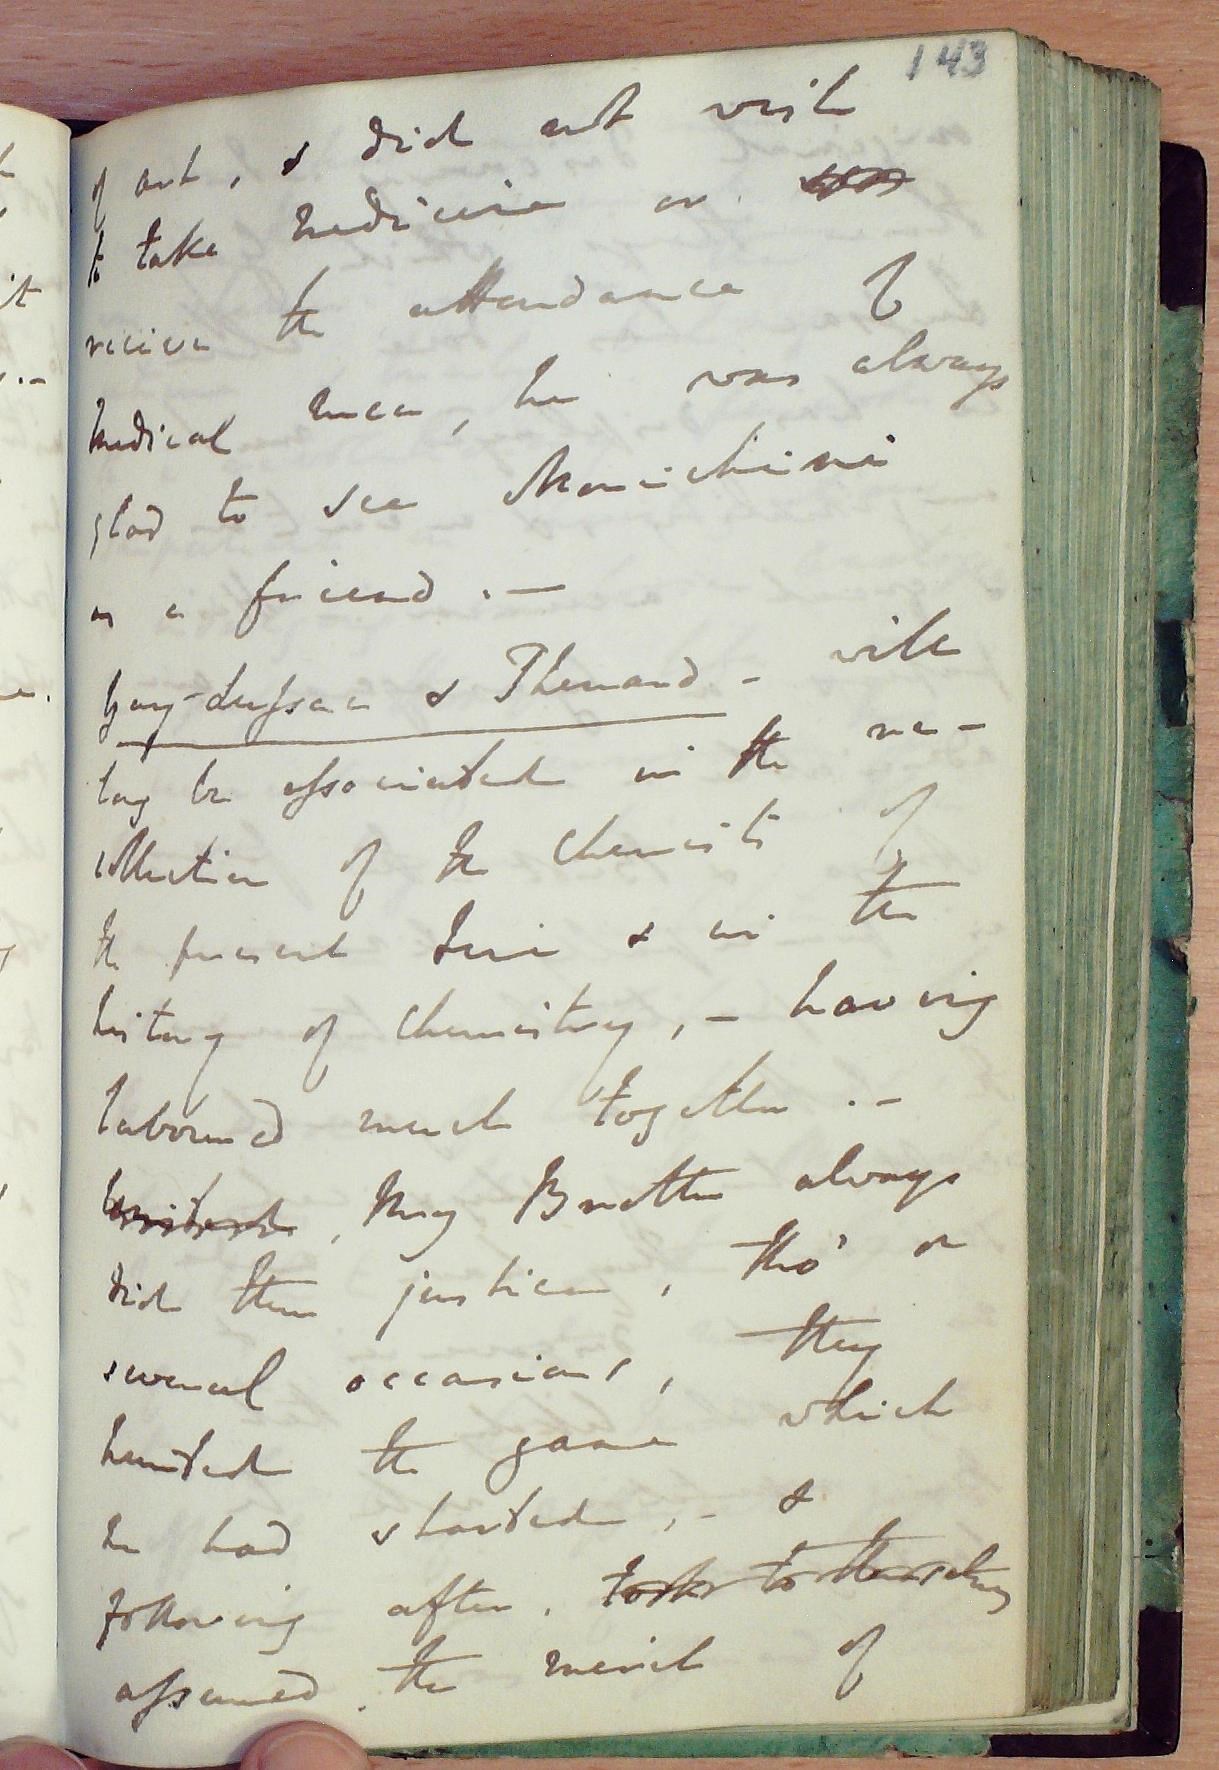 143
of art, & did not wish
to take medicine or
receive the attendance of
medical men, he was always
glad to see Morichini
as a friend. —
Gay-Lussac & Thenard - will
long be associated in the re-
collection of the chemists of
the present time & in the
history of chemistry, - having
laboured much together. -
My Brother always
did them justice, tho' on
several occasions, they
hunted the game which
he had started, - & 
following after, took to themselves
assumed the merit of